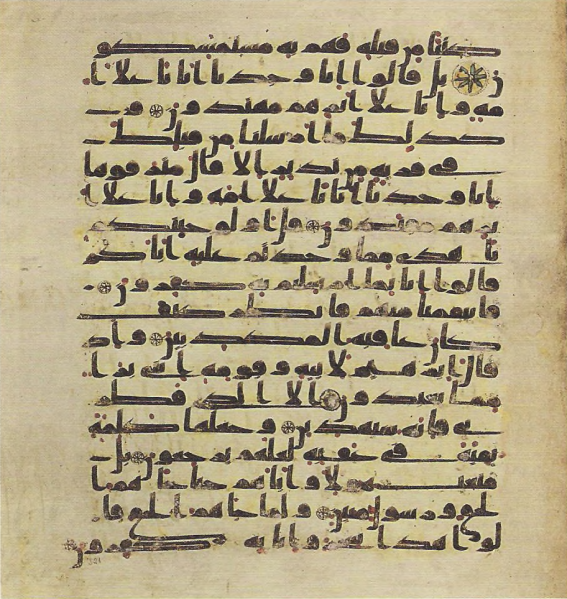 كتبا من قبله فهم به مستمسكو
ن بل قالوا انا وجدنا ابانا على ا
مة وانا على اثرهم مهتدون و
كذلك ما ارسلنا من قبلك
في قرية من نذير الا قال مترفوها
انا وجدنا ابانا على امة وانا على ا
ثرهم مقتدون قل او لو جئتكم
باهدى مما وجدتم عليه اباكم
قالوا انا بما ارسلتم به كفرون
فانتقمنا منهم فانظر كيف
كان عاقبة المكذبين واذ
قال ابرهيم لابيه وقومه انني برا
مما تعبدون الا الذي فطر
ني فانه سيهدين وجعلها كلمة
بقية في عقبه لعلهم يرجعون بل
متعت هولا واباهم حتى جاهم ا
لحق ورسول مبين ولما جاهم الحق قا
لوا هذا سحر وانا به كفرون